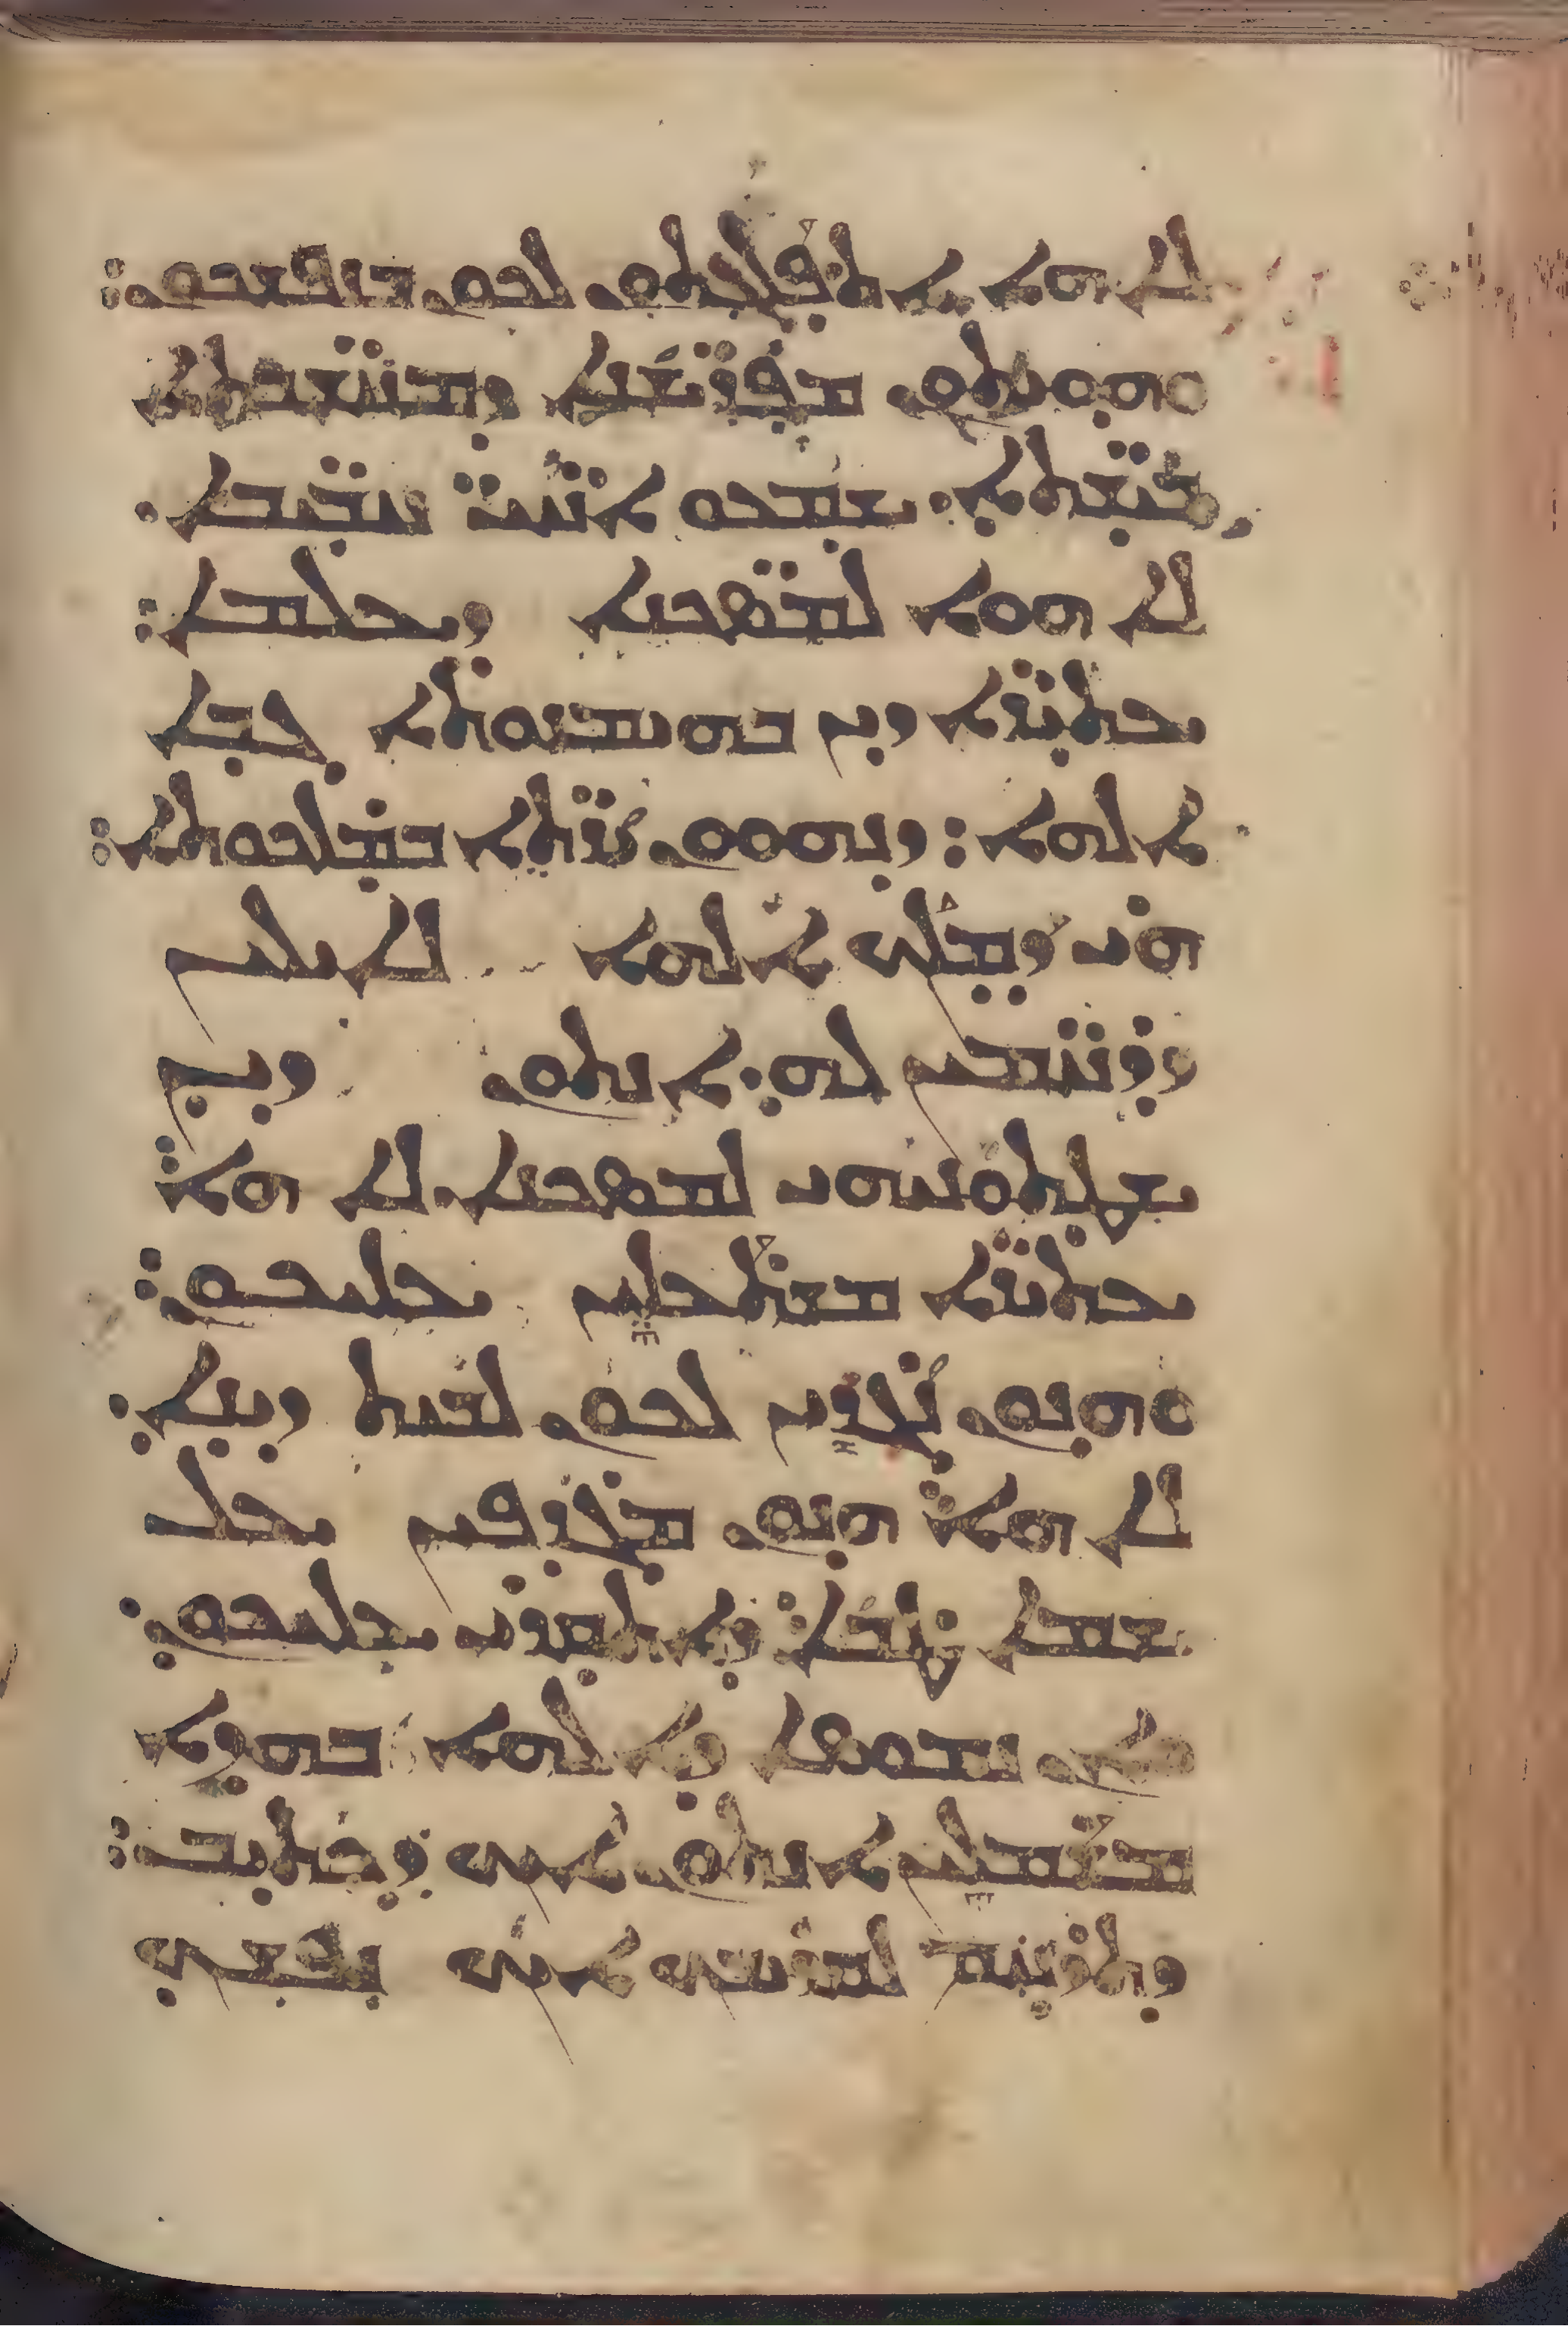 ܠܐ ܗܐ ܐܬܦܠܓܬܘܢ ܠܟܘܢ ܒܢܦܫܟܘܢ:
ܘܗܘܝܬܘܢ ܡܦܪܫܢܐ ܕܡܚܫܒܬܐ
ܒܝܫܬܐ. ܫܡܥܘ ܐܚܝ ܚܒܝܒܐ.
ܠܐ ܗܘܐ ܠܡܣܟܢܐ ܕܥܠܡܐ:
ܥܬܝܪܐ ܕܝܢ ܒܗܝܡܢܘܬܐ ܓܒܐ
ܐܠܗܐ: ܕܢܗܘܘܢ ܝܪܬܐ ܒܡܠܟܘܬܐ:
ܗܝ ܕܡܠܟ ܐܠܗܐ ܠܐܝܠܝܢ
ܕܪܚܡܝܢ ܠܗ. ܐܢܬܘܢ ܕܝܢ
ܫܛܬܘܢܝܗܝ ܠܡܣܟܢܐ. ܠܐ ܗܐ
ܥܬܝܪܐ ܡܫܬܥܠܝܢ ܥܠܝܟܘܢ:
ܘܗܢܘܢ ܢܓܕܝܢ ܠܟܘܢ ܠܒܝܬ ܕܝܢܐ.
ܠܐ ܗܐ ܗܢܘܢ ܡܓܕܦܝܢ ܥܠ
ܫܡܐ ܛܒܐ: ܕܐܬܩܪܝ ܥܠܝܟܘܢ:
ܘܐܢ ܢܡܘܣܐ ܕܐܠܗܐ ܒܗܕܐ
ܡܫܡܠܝܢ ܐܢܬܘܢ ܐܝܟ ܕܟܬܝܒ:
ܕܬܪܚܡ ܠܩܪܝܒܟ ܐܝܟ ܢܦܫܟ